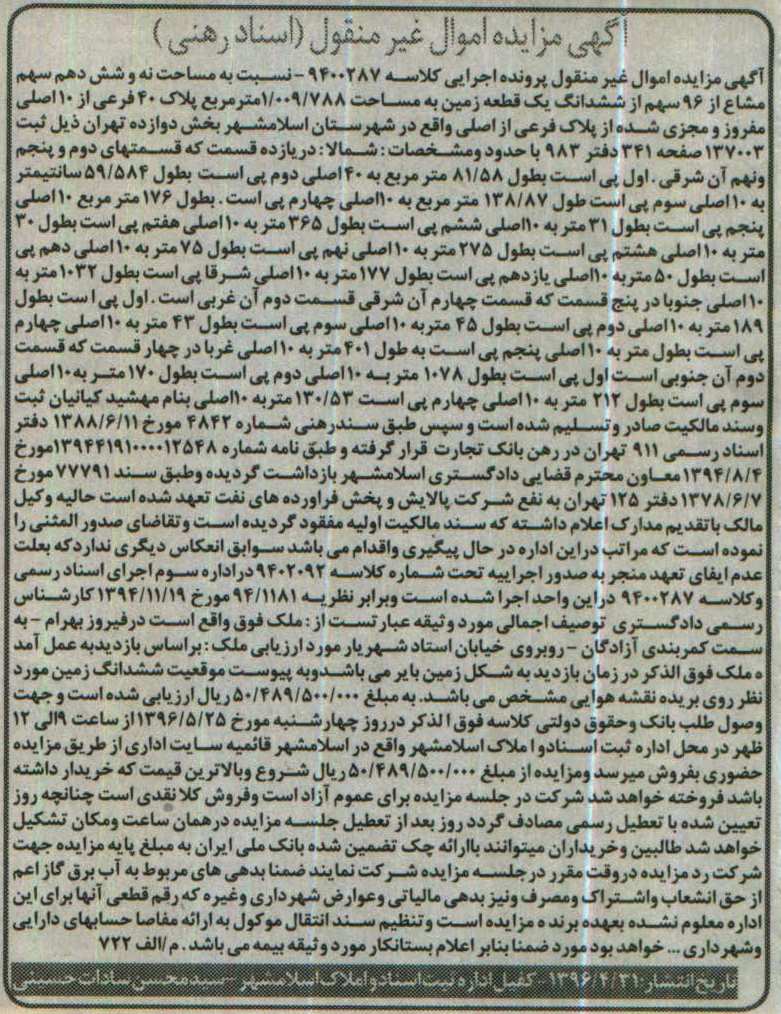 آگهی مزایده اموال غیر منقول (اسناد رهنی)
آگهی مزایده اموال غیر منقول پرونده اجرایی کلاسه ۹۴۰۰۲۸۷ - نسبت به مساحت نه و شش دهم سهم
مشاع از ۹۶ سهم از ششدانگ یک قطعه زمین به مساحت ۱/۰۰۹/۷۸۸مترمربع پلاک ۴۰ فرعی از ۱۰ اصلی
مفروز و مجزی شده از پلاک فرعی از اصلی واقع در شهرستان اسلامشهر بخش دوازده تهران ذیل ثبت
۱۳۷۰۰۳ صفحه ۳۴۱ دفتر ۹۸۳ با حدود ومشخصات : شمالا : دریازده قسمت که قسمتهای دوم و پنجم
ونهم آن شرقی . اول پی است بطول ۸۱/۵۸ متر مربع به ۴۰ اصلی دوم پی است بطول ۵۹/۵۸۴ سانتیمتر
به ۱۰ اصلی سوم پی است طول ۱۳۸/۸۷ متر مربع به ۱۰اصلی چهارم پی است . بطول ۱۷۶ متر مربع ۱۰ اصلی
پنجم پی است بطول ۳۱ متر به ۱۰اصلی ششم پی است بطول ۳۶۵ متر به ۱۰ اصلی هفتم پی است بطول ۳۰
متر به ۱۰ اصلی هشتم پی است بطول ۲۷۵ متر به ۱۰ اصلی نهم پی است بطول ۷۵ متر به ۱۰ اصلی دهم پی
است بطول ۵۰ متربه ۱۰اصلی یازدهم پی است بطول ۱۷۷ متر به ۱۰ اصلی شرقا پی است بطول ۱۰۳۲ متر به
۱۰ اصلی جنوبا در پنج قسمت که قسمت چهارم آن شرقی قسمت دوم آن غربی است . اول پی است بطول
۱۸۹ متر به ۱۰ اصلی دوم پی است بطول ۴۵ متربه ۱۰ اصلی سوم پی است بطول ۴۳ متر به ۱۰ اصلی چهارم
پی است بطول متر به ۱۰ اصلی پنجم پی است به طول ۴۰۱ متر به ۱۰ اصلی غربا در چهار قسمت که قسمت
دوم آن جنوبی است اول پی است بطول ۱۰۷۸ متر به ۱۰ اصلی دوم پی است بطول ۱۷۰ متر به۱۰ اصلی
سوم پی است بطول ۲۱۲ متر به ۱۰ اصلی چهارم پی است ۱۳۰/۵۳ متربه ۱۰اصلی بنام مهشید کیانیان ثبت
وسند مالکیت صادر و تسلیم شده است و سپس طبق سندرهنی شماره ۴۸۴۲ مورخ ۱۳۸۸/۶/۱۱ دفتر
اسناد رسمی ۹۱۱ تهران در رهن بانک تجارت قرار گرفته و طبق نامه شماره ۱۳۹۴۴۱۹۱۰۰۰۰۱۲۵۴۸مورخ
۱۳۹۴/۸/۴ معاون محترم قضایی دادگستری اسلامشهر بازداشت گردیده وطبق سند ۷۷۷۹۱ مورخ
۱۳۷۸/۶/۷ دفتر ۱۲۵ تهران به نفع شرکت پالایش و پخش فراورده های نفت تعهد شده است حالیه وکیل
مالک باتقدیم مدارک اعلام داشته که سند مالکیت اولیه مفقود گردیده است وتقاضای صدور المثنی را
نموده است که مراتب دراین اداره در حال پیگیری واقدام می باشد سوابق انعکاس دیگری نداردکه بعلت
عدم ایفای تعهد منجر به صدور اجراییه تحت شماره کلاسه ۹۴۰۲۰۹۲ دراداره سوم اجرای اسناد رسمی
وکلاسه ۹۴۰۰۲۸۷ دراین واحد اجرا شده است وبرابر نظریه ۹۴/۱۱۸۱ مورخ ۱۳۹۴/۱۱/۱۹ کارشناس
رسمی دادگستری توصیف اجمالی مورد وثیقه عبارتست از : ملک فوق واقع است درفیروز بهرام - به
سمت کمربندی آزادگان - روبروی خیابان استاد شهریار مورد ارزیابی ملک : براساس بازدیدبه عمل آمد
ه ملک فوق الذکر در زمان بازدید به شکل زمین بایر می باشدوبه پیوست موقعیت ششدانگ زمین مورد
نظر روی بریده نقشه هوایی مشخص می باشد. به مبلغ ۵۰/۴۸۹/۵۰۰/۰۰۰ ریال ارزیابی شده است و جهت
وصول طلب بانک وحقوق دولتی کلاسه فوق الذکر درروز چهارشنبه مورخ ۱۳۹۶/۵/۲۵از ساعت ۹الی ۱۲
ظهر در محل اداره ثبت اسنادو املاک اسلامشهر واقع در اسلامشهر قائمیه سایت اداری از طریق مزایده
حضوری بفروش میرسد ومزایده از مبلغ ۵۰/۴۸۹/۵۰۰/۰۰۰ ریال شروع وبالاترین قیمت که خریدار داشته
باشد فروخته خواهد شد شرکت در جلسه مزایده برای عموم آزاد است وفروش کلا نقدی است چنانچه روز
تعیین شده با تعطیل رسمی مصادف گردد روز بعد از تعطیل جلسه مزایده درهمان ساعت ومکان تشکیل
خواهد شد طالبین وخریداران میتوانند باارائه چک تضمین شده بانک ملی ایران به مبلغ پایه مزایده جهت
شرکت رد مزایده دروقت مقرر درجلسه مزایده شرکت نمایند ضمنا بدهی های مربوط به آب برق گاز اعم
از حق انشعاب واشتراک ومصرف ونیز بدهی مالیاتی وعوارض شهرداری وغیره که رقم قطعی آنها برای این
اداره معلوم نشده بعهده برنده مزایده است وتنظیم سند انتقال موکول به ارائه مفاصا حسابهای دارایی
وشهرداری ... خواهد بود مورد ضمنا بنابر اعلام بستانکار مورد وثیقه بیمه می باشد . م/الف ۷۲۲
تاریخ انتشار: ۱۳۹۶/۴/۳۱ - کفیل اداره ثبت اسناد و املاک اسلامشهر - سید محسن سادات حسینی